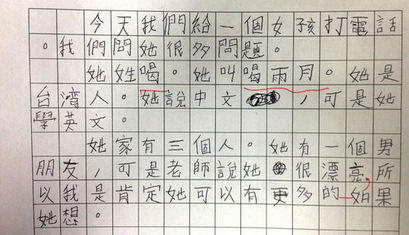 今天我們給一個女孩打電話
。我們問她很多問題。
她姓喝。她叫喝雨月。她是
台灣人。她說中文，可是她
學英文。
她家有三個人。她有一個男
朋友，可是老師說她很漂亮所
以我是肯定她可以有更多的如果
她想。